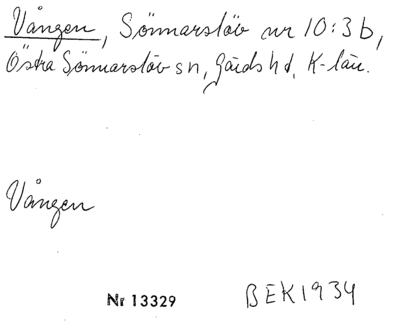 Vången, Sönnarslöv nr 10:3b,
Östra Sönnarslöv sn, Gärds hd, K-län.
Vången
Nr 13329
BEK1934